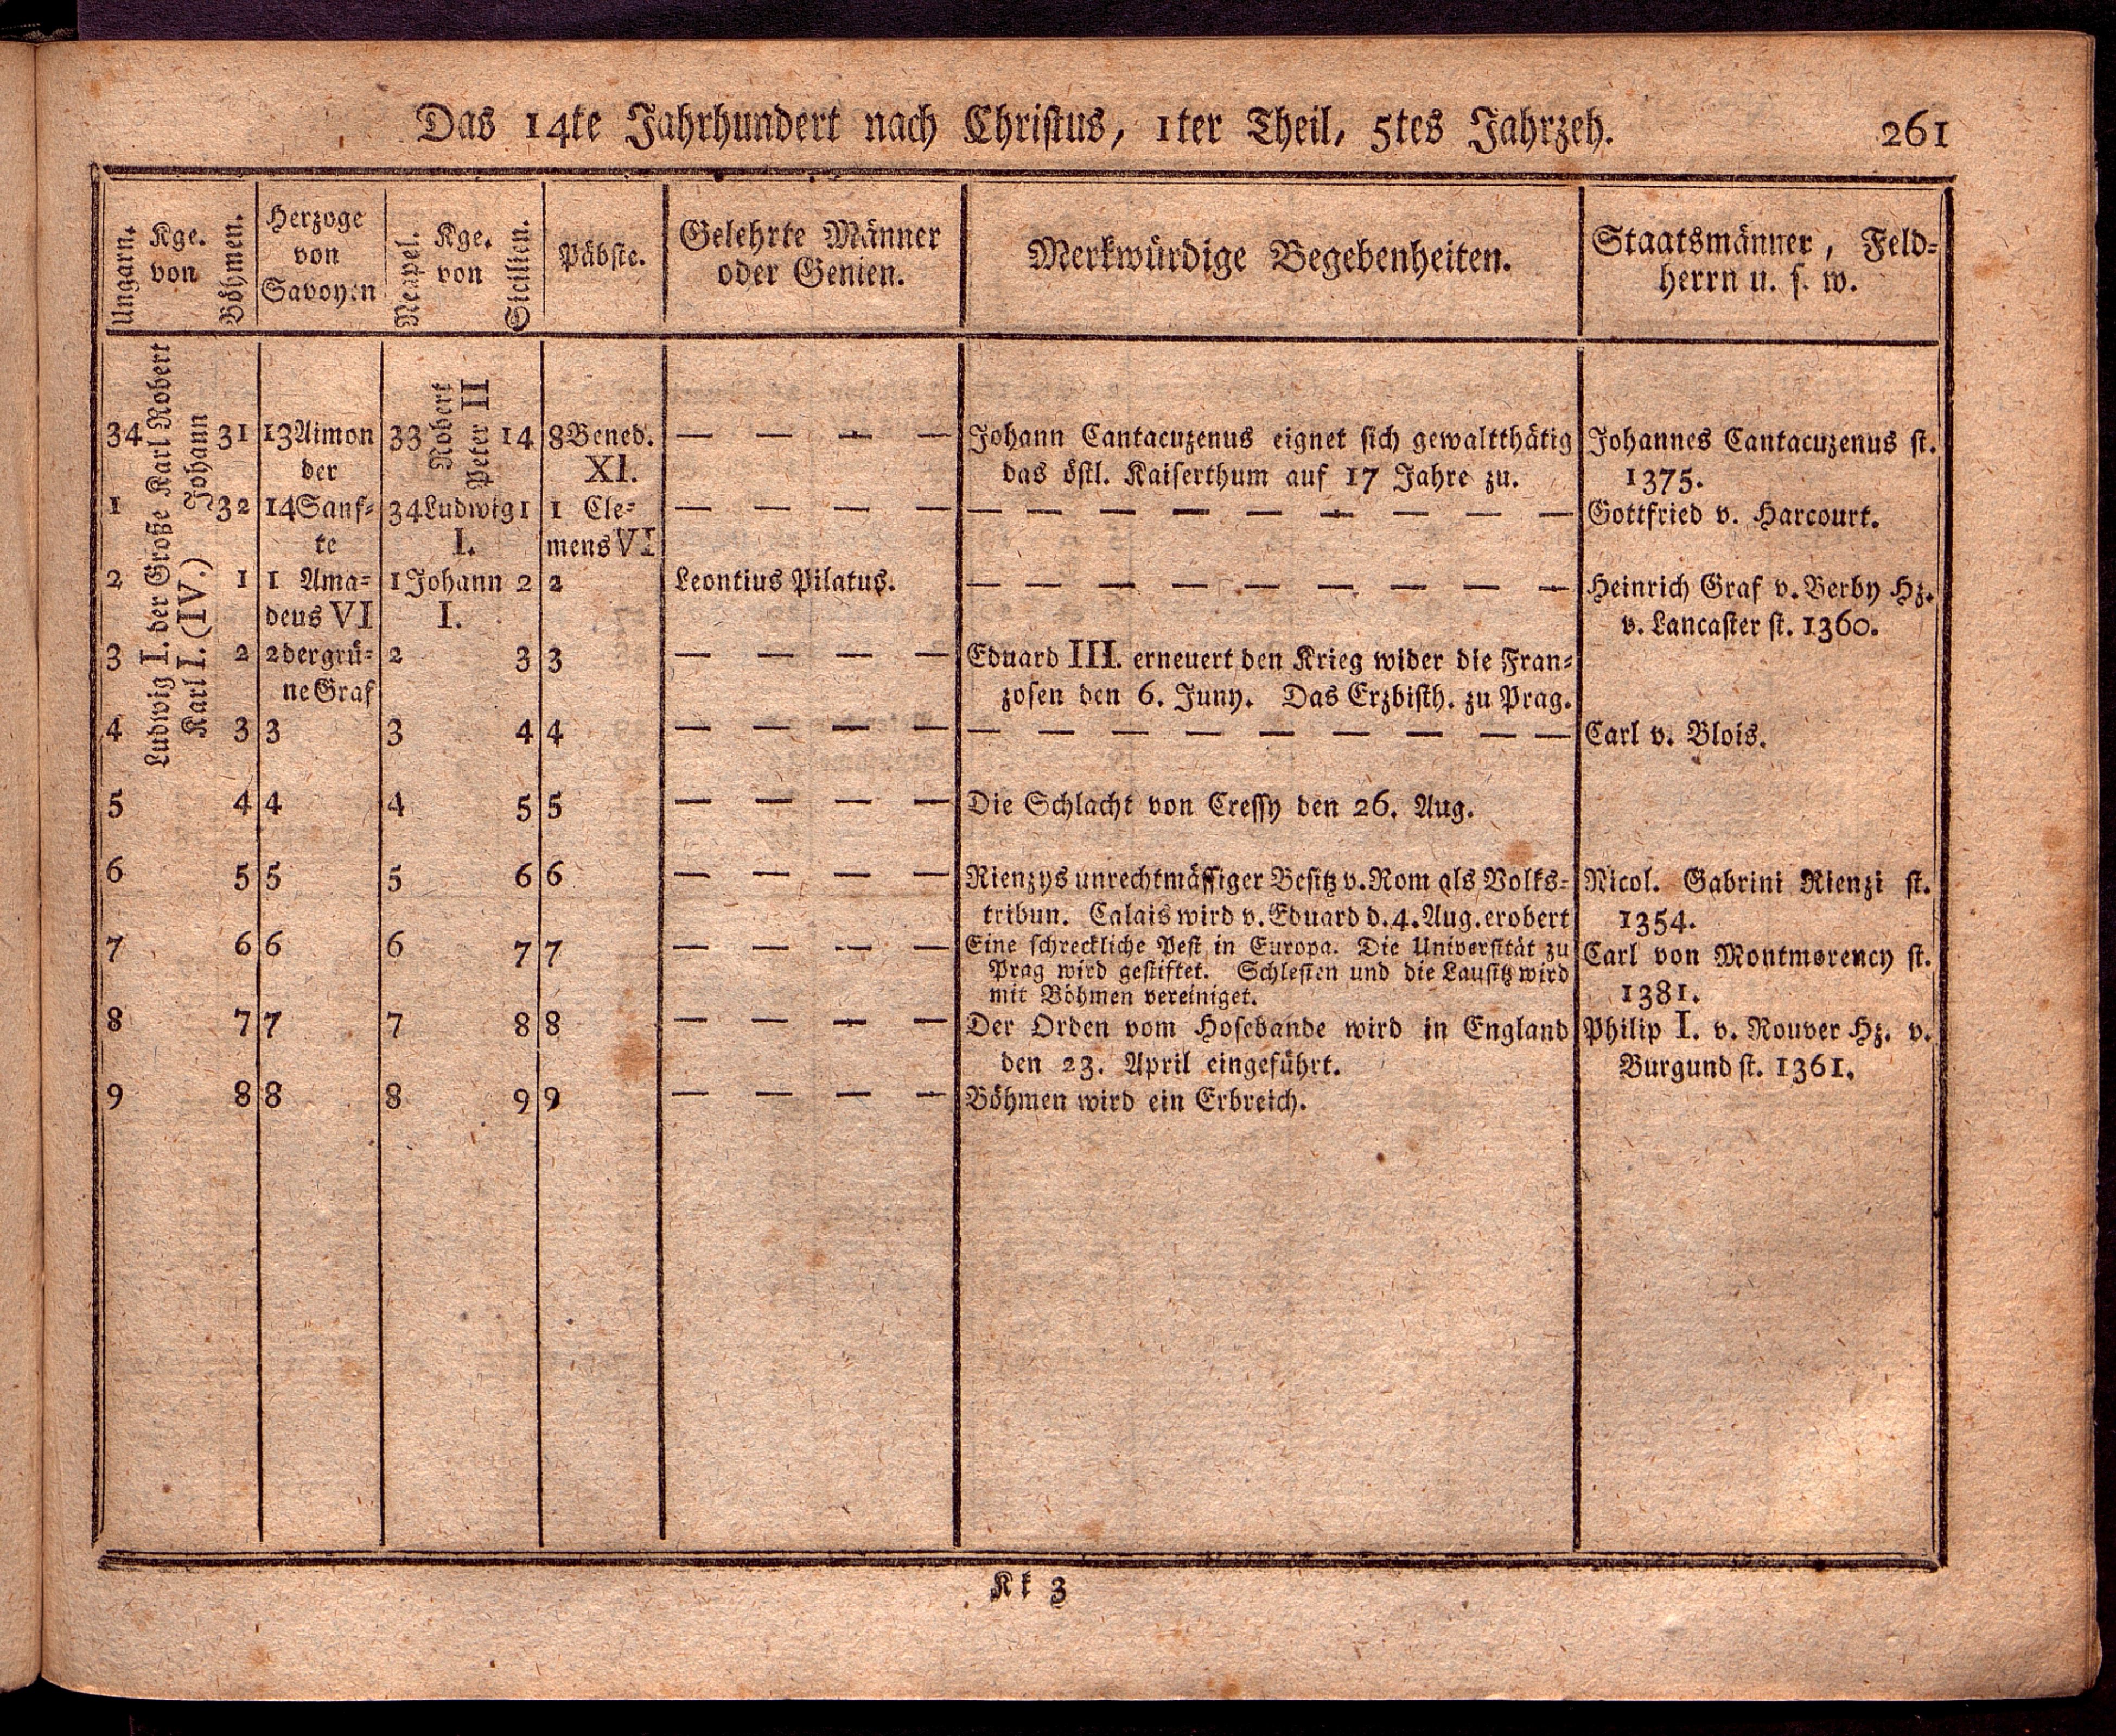 Das 14te Jahrhundert nach Christus, 1ter Theil, 5tes Jahrzeh. 261
Ungarn. Kge. von Böhmen.
Herzoge
von
Savoyen
Neapel. Kge. von Sicilien.
Päbste.
Gelehrte Männer
oder Genien.
Merkwürdige Begebenheiten.
Staatsmänner, Feld=
herrn u. s. w.
Karl Robert
Ludwig I. der Große
Johann
Karl I. (IV.)
Robert
Peter II
34 31 13 Aimon 33 14 8 Bened. — — — — Johann Cantacuzenus eignet sich gewaltthätig Johannes Cantacuzenus st.
der XI. das östl. Kaiserthum auf 17 Jahre zu. 1375.
1 32 14 Sanf= 34 Ludwig 1 1 Cle= — — — — — — — — — — — — — Gottfried v. Harcourt.
te I. mens VI
2 1 1 Ama= 1 Johann 2 2 Leontius Pilatus. — — — — — — — — — Heinrich Graf v. Berby Hz.
deus VI I. v. Lancaster st. 1360.
3 2 2 der grü= 2 3 3 — — — — Eduard III. erneuert den Krieg wider die Fran=
ne Graf zosen den 6. Juny. Das Erzbisth. zu Prag.
4 3 3 3 4 4 — — — — — — — — — — — — — Carl v. Blois.
5 4 4 4 5 5 — — — — Die Schlacht von Cressy den 26. Aug.
6 5 5 5 6 6 — — — — Rienzys unrechtmässiger Besitz v. Rom als Volks= Nicol. Gabrini Rienzi st.
tribun. Calais wird v. Eduard d. 4. Aug. erobert 1354.
7 6 6 6 7 7 — — — — Eine schreckliche Pest in Europa. Die Universität zu Carl von Montmorency st.
Prag wird gestiftet. Schlesien und die Lausitz wird
mit Böhmen vereiniget. 1381.
8 7 7 7 8 8 — — — — Der Orden vom Hosebande wird in England Philip I. v. Rouver Hz. v.
den 23. April eingeführt. Burgund st. 1361.
9 8 8 8 9 9 — — — — Böhmen wird ein Erbreich.
Kk 3